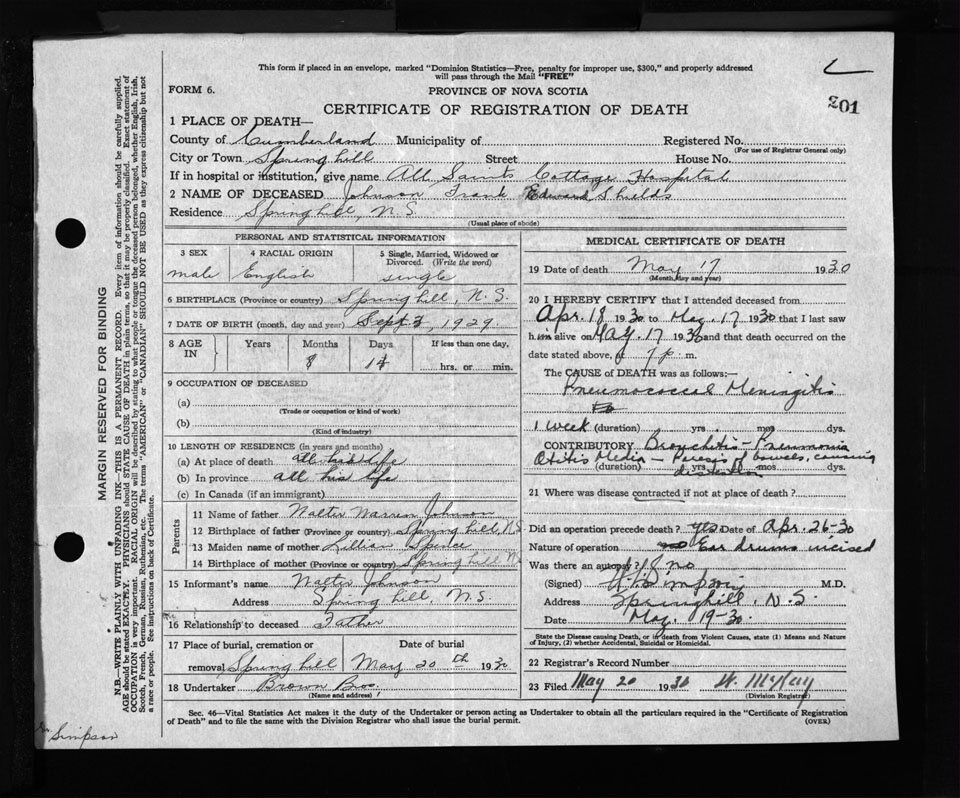 This form if placed in an envelope, marked "Dominion Statistics—Free, penalty for improper use, $300," and properly addressed
will pass through the Mail "FREE"
FORM 6.
PROVINCE OF NOVA SCOTIA
201
CERTIFICATE OF REGISTRATION OF DEATH
1 PLACE OF DEATH—
County of Cumberland Municipality of Registered No.
(For use of Registrar General only)
City or Town Spring hill Street House No.
If in hospital or institution, give name All Saints Cottage Hospital
2 NAME OF DECEASED Johnson Frank Edward Shields
Residence Springhill, N.S.
(Usual place of abode)
PERSONAL AND STATISTICAL INFORMATION
3 SEX 4 RACIAL ORIGIN 5 Single, Married, Widowed or
Divorced. (Write the word)
male English single
6 BIRTHPLACE (Province or country) Spring hill, N.S.
7 DATE OF BIRTH (month, day and year) Sept 3, 1929
8 AGE IN Years Months Days If less than one day,
8 14 hrs. or min.
9 OCCUPATION OF DECEASED
(a)
(Trade or occupation or kind of work)
(b)
(Kind of industry)
10 LENGTH OF RESIDENCE (in years and months)
(a) At place of death all his life
(b) In province all his life
(c) In Canada (if an immigrant)
Parents
11 Name of father Walter Warren Johnson
12 Birthplace of father (Province or country) Spring hill, N.S
13 Maiden name of mother Lillian Spence
14 Birthplace of mother (Province or country) Spring hill, N.
15 Informant's name Walter Johnson
Address Spring hill, N.S.
16 Relationship to deceased Father
17 Place of burial, cremation or Date of burial
removal Spring hill May 20th 1930
18 Undertaker Brown Bros,
(Name and address)
MEDICAL CERTIFICATE OF DEATH
19 Date of death May 17 1930
(Month, day and year)
20 I HEREBY CERTIFY that I attended deceased from
Apr. 18 1930 to May. 17 1930 that I last saw
him alive on May. 17 1930 and that death occurred on the
date stated above, at 7 p. m.
The CAUSE of DEATH was as follows:—
Pneumococcal Meningitis
1 week (duration) yrs. mos. dys.
CONTRIBUTORY Bronchitis - Pneumonia
Otitis Media - Paresis of bowels, causing
(duration) yrs. mos. dys.
distention
21 Where was disease contracted if not at place of death?
Did an operation precede death? yes Date of Apr. 26-30
Nature of operation Ear drums incised
Was there an autopsy? no
(Signed) Simpson M.D.
Address Springhill, N.S
Date May. 19-30.
State the Disease causing Death, or in death from Violent Causes, state (1) Means and Nature
of Injury, (2) whether Accidental, Suicidal or Homicidal.
22 Registrar's Record Number
23 Filed May 20 1930 W. McKay
(Division Registrar)
Sec. 46—Vital Statistics Act makes it the duty of the Undertaker or person acting as Undertaker to obtain all the particulars required in the "Certificate of Registration
of Death" and to file the same with the Division Registrar who shall issue the burial permit.
(OVER)
MARGIN RESERVED FOR BINDING
N.B. WRITE PLAINLY WITH UNFADING INK—THIS IS A PERMANENT RECORD. Every item of information should be carefully supplied.
AGE should be stated EXACTLY. PHYSICIANS should STATE CAUSE OF DEATH in plain terms, so that it may be properly classified. Exact statement of
OCCUPATION is very important. RACIAL ORIGIN will be described by stating to what people or tongue the deceased person belonged, whether English, Irish,
Scotch, French, German, Russian, Ruthenian, etc. The terms "AMERICAN" or "CANADIAN" SHOULD NOT BE USED as they express citizenship but not
a race or people. See instructions on back of Certificate.
Simpson